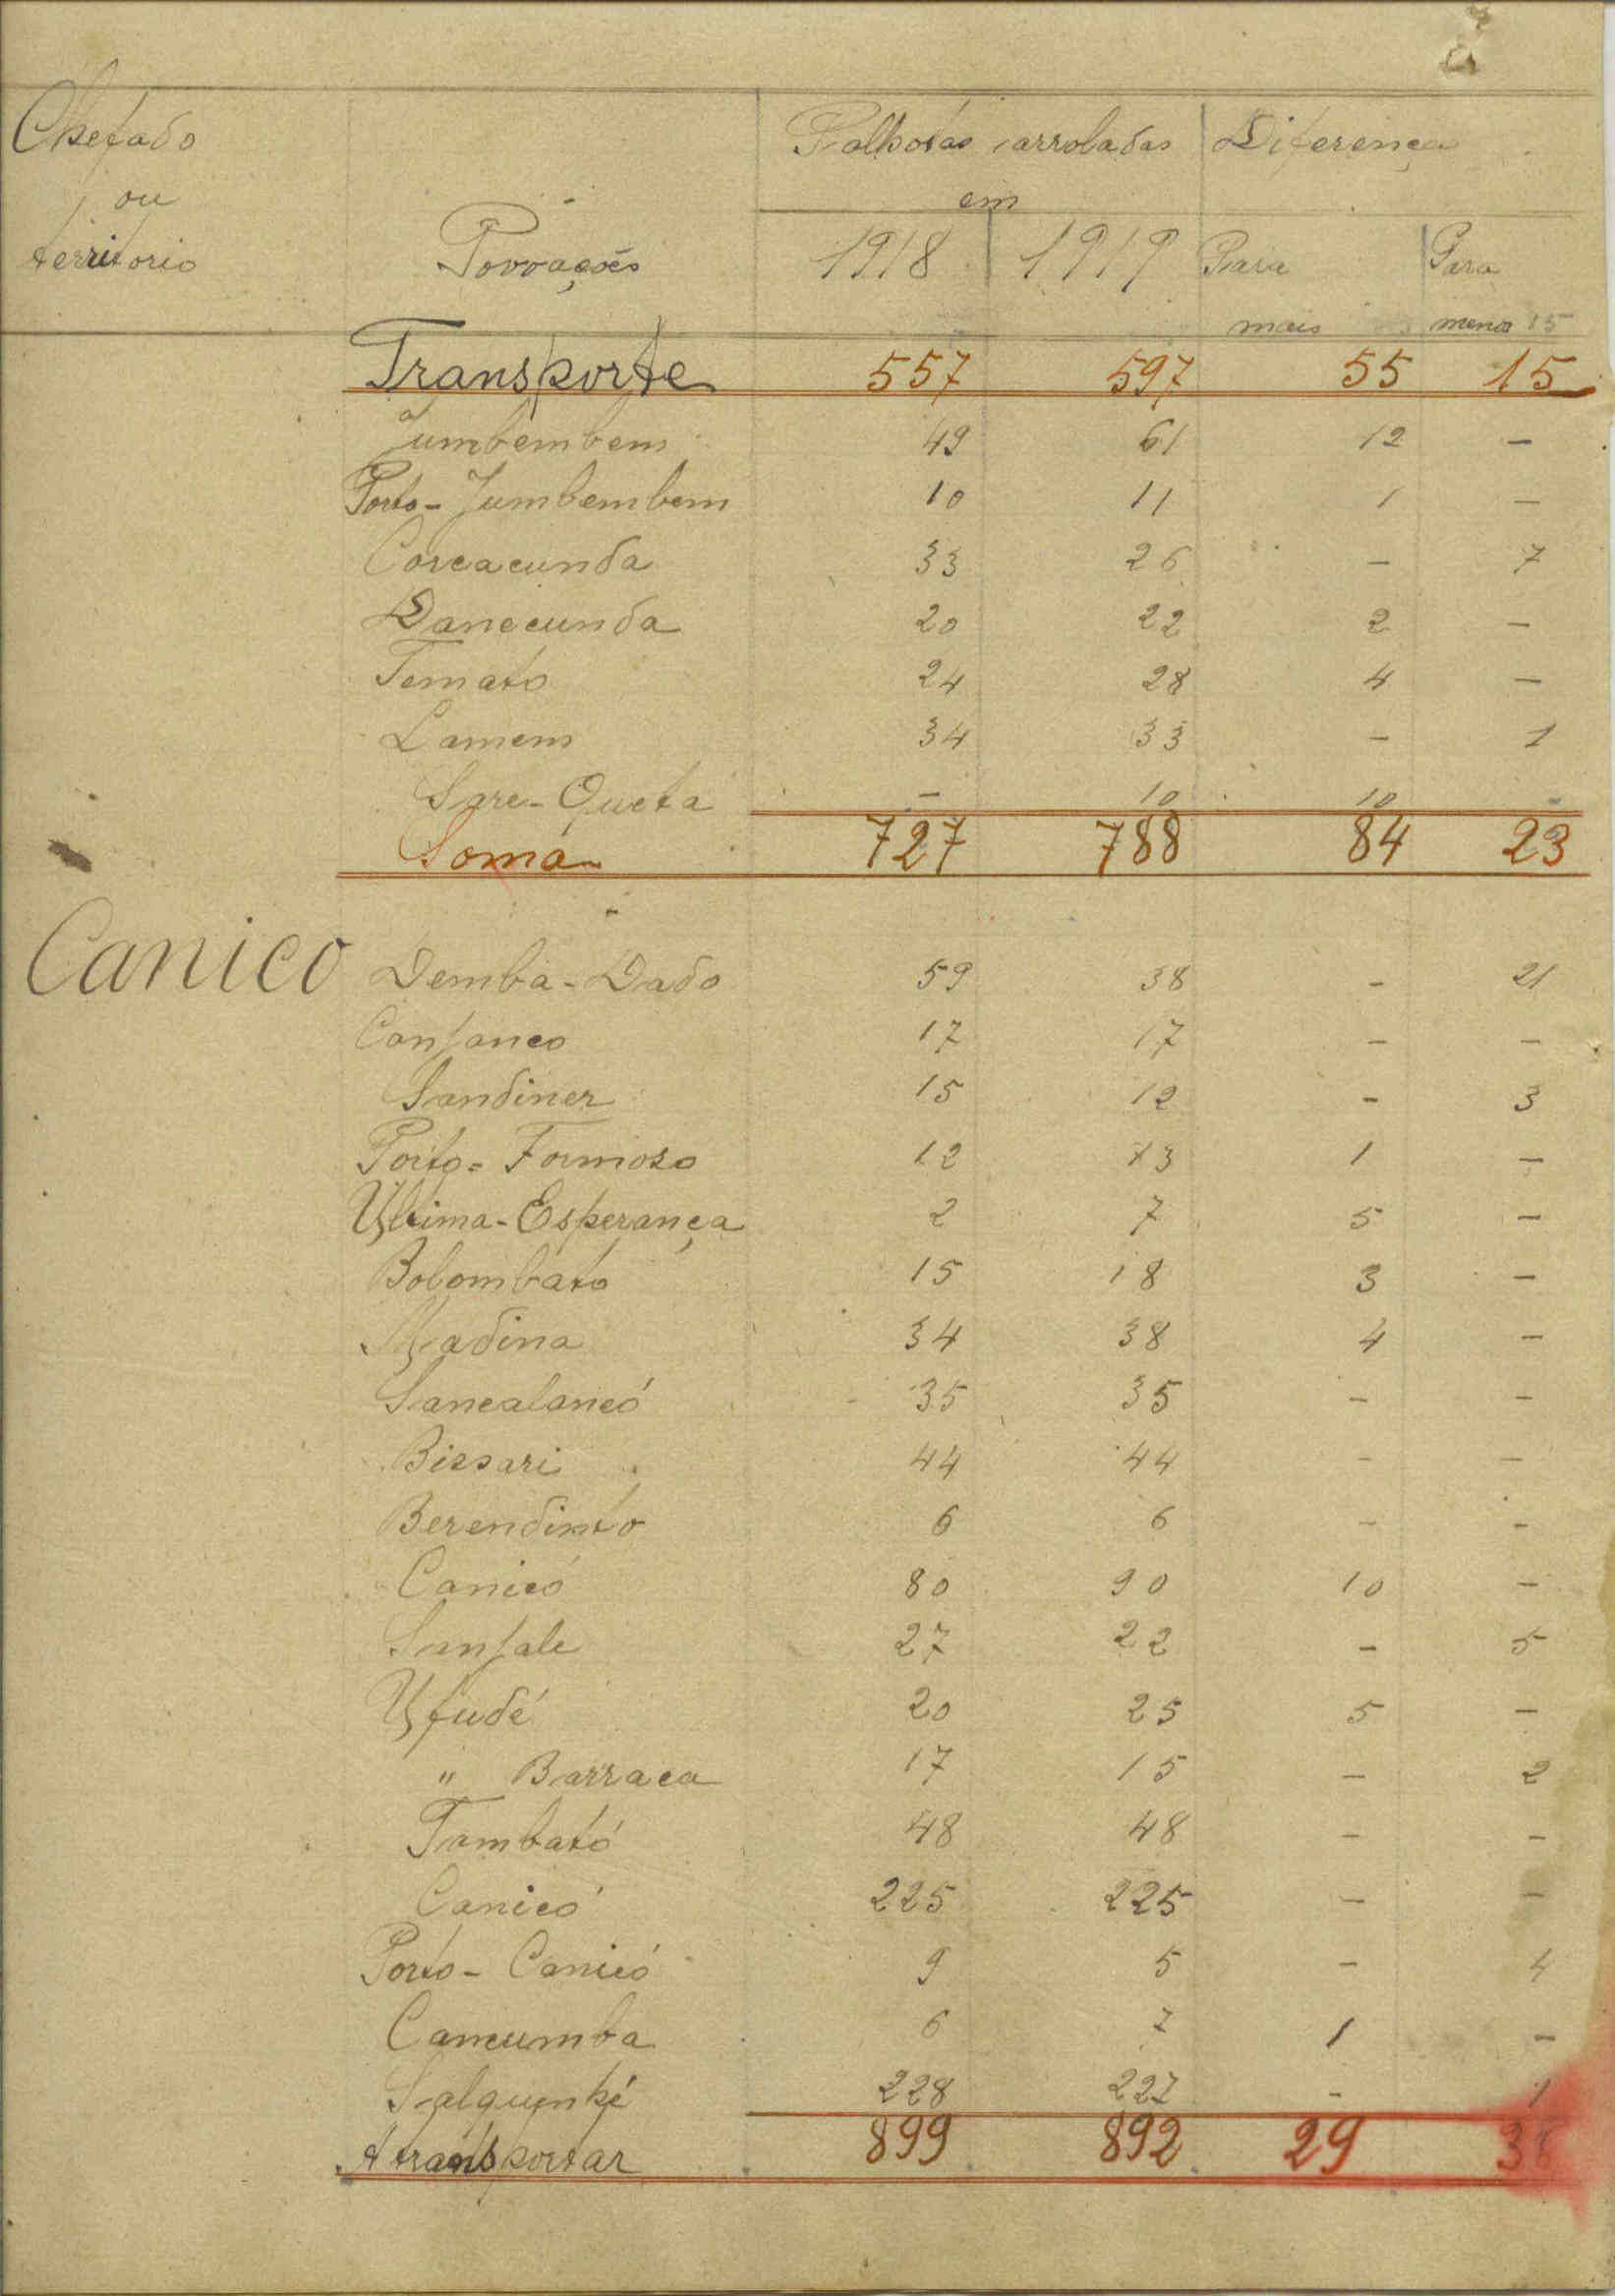 Chefado ou territorio
Povoações
Palhotas arroladas em
1918 1919
Diferença
Para mais
Para menos 15
Transporte 557 597 55 15
Jumbembem 49 61 12 –
Porto - Jumbembem 10 11 1 –
Coreacunda 33 26 – 7
Danecunda 20 22 2 –
Temato 24 28 4 –
Lamem 34 33 – 1
Sare - Queta – 10 10 –
Soma 727 788 84 23
Canico Demba - Dado 59 38 – 21
Canjanco 17 17 – –
Sandiner 15 12 – 3
Porto = Formoso 12 13 1 –
Ultima - Esperança 2 7 5 –
Bolombato 15 18 3 –
Madina 34 38 4 –
Sancalancó 35 35 – –
Bissari 44 44 – –
Berendinto 6 6 – –
Canicó 80 90 10 –
Sanjale 27 22 – 5
Ufudé 20 25 5 –
" Barraca 17 15 – 2
Tambató 48 48 – –
Canicó 225 225 – –
Porto - Canicó 9 5 – 4
Camcumba 6 7 1 –
Salquenhé 228 227 – 1
A transportar 899 892 29 36